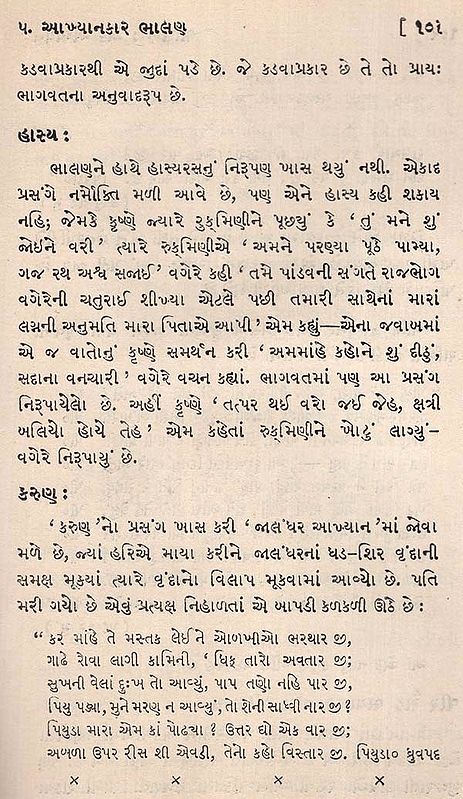 ૫. આખ્યાનકાર ભાલણ [ ૧૦૧
કડવાપ્રકારથી એ જુદાં પડે છે. જે કડવાપ્રકાર છે તે તો પ્રાયઃ
ભાગવતના અનુવાદરૂપ છે.
હાસ્ય :
ભાલણને હાથે હાસ્યરસનું નિરૂપણ ખાસ થયું નથી. એકાદ
પ્રસંગે નર્મોક્તિ મળી આવે છે, પણ એને હાસ્ય કહી શકાય
નહિ; જેમકે કૃષ્ણે જ્યારે રુક્મિણીને પૂછ્યું કે ‘ તું મને શું
જોઇને વરી ’ ત્યારે રુક્મિણીએ ‘ અમને પરણ્યા પૂઠે પામ્યા,
ગજ રથ અશ્વ સજાઈ ’ વગેરે કહી ‘ તમે પાંડવની સંગતે રાજભોગ
વગેરેની ચતુરાઈ શીખ્યા એટલે પછી તમારી સાથેનાં મારાં
લગ્નની અનુમતિ મારા પિતાએ આપી ’ એમ કહ્યું—એના જવાબમાં
એ જ વાતોનું કૃષ્ણે સમર્થન કરી ‘ અમમાંહે કહોને શું દીઠું,
સદાના વનચારી ’ વગેરે વચન કહ્યાં. ભાગવતમાં પણ આ પ્રસંગ
નિરૂપાયેલો છે. અહીં કૃષ્ણે ‘ તત્પર થઈ વરો જઈ જેહ, ક્ષત્રી
બલિયો હોયે તેહ ’ એમ કહેતાં રુક્મિણીને ખોટું લાગ્યું–
વગેરે નિરૂપાયું છે.
કરુણ :
‘ કરુણ ’નો પ્રસંગ ખાસ કરી ‘ જાલંધર આખ્યાન ’માં જોવા
મળે છે, જ્યાં હરિએ માયા કરીને જાલંધરનાં ધડ-શિર વૃંદાની
સમક્ષ મૂક્યાં ત્યારે વૃંદાનો વિલાપ મૂકવામાં આવ્યો છે. પતિ
મરી ગયો છે એવું પ્રત્યક્ષ નિહાળતાં એ બાપડી કળકળી ઊઠે છે :
“ કર માંહે તે મસ્તક લેઈને ઓળખીઓ ભરથાર જી,
ગાઢે રોવા લાગી કામિની, ‘ ધિક્ તારો અવતાર જી;
સુખની વેલાં દુઃખ તો આવ્યું, પાપ તણો નહિ પાર જી,
પિયુ પડ્યા, મુને મરણ ન આવ્યું, તો શેની સાધ્વી નાર જી?
પિયુડા મારા એમ કાં પોઢ્યા ? ઉત્તર દ્યો એક વાર જી;
અબળા ઉપર રીસ શી એવડી, તેનો કહો વિસ્તાર જી. પિયુડા૦ ધ્રુવપદ
× × × ×